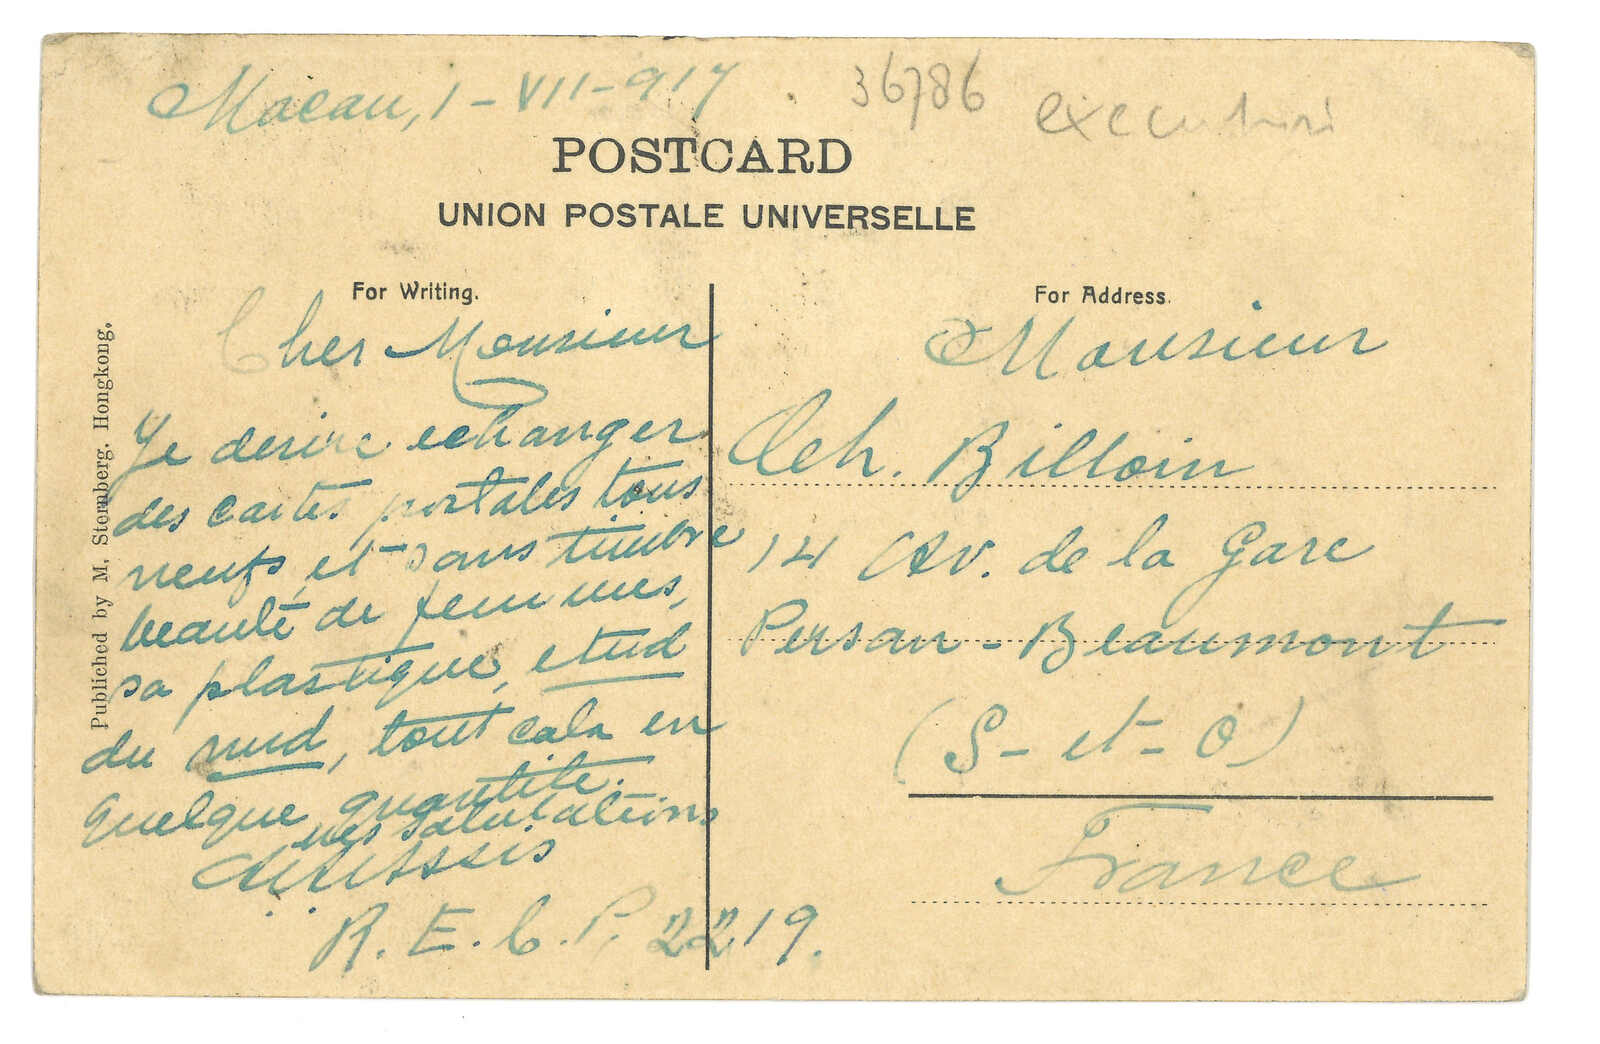 Macau, 1-VII-917
36786
POSTCARD
UNION POSTALE UNIVERSELLE
For Writing.
Cher Monsieur
Je desire echanger
des cartes postales tous
neufs, et sans timbre
beauté de femmes,
sa plastique, etud
du nud, tout cala en
quelque quantite.
mes salutations
R. E. C. P. 2219.
For Address.
Monsieur
Ch. Billoin
14 Av. de la Gare
Persan-Beaumont
(S-et-O)
France
Publiched by M. Sternberg. Hongkong.